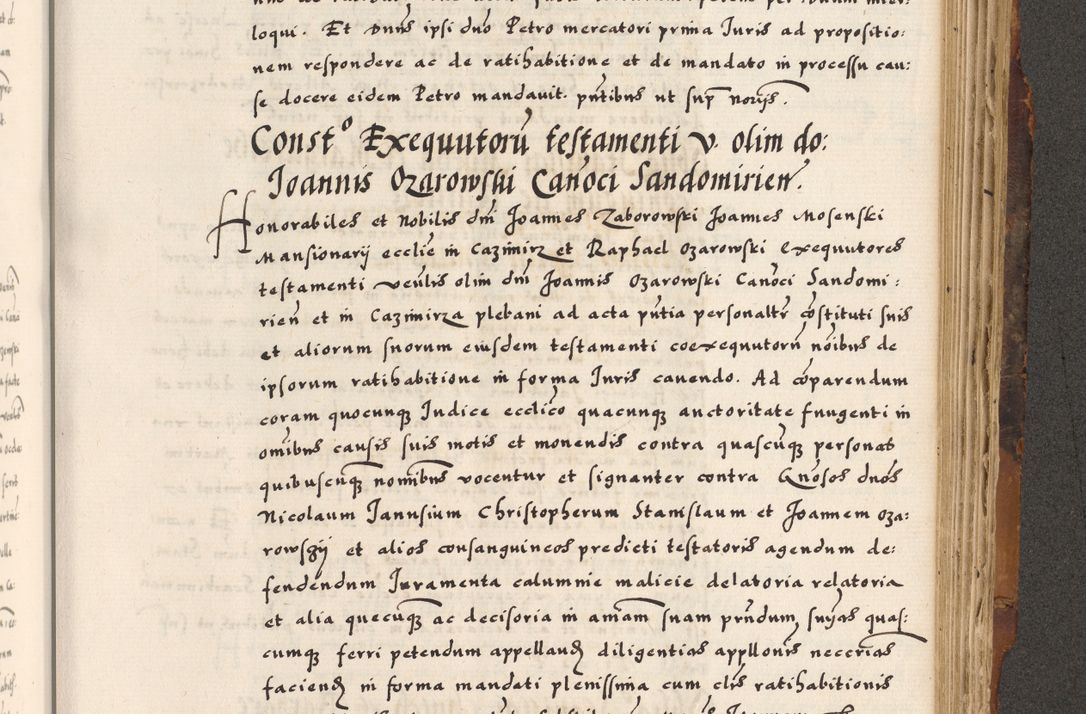 loqui. Et Duñs ipsi duo Petro mercatori prima Iuris ad propositio:
nem respondere ac de ratihabitione et de mandato in processu cau:
se docere eidem Petro mandauit. pñtibus ut sup norijs.
Constº Exequutorũ testamenti v. olim do:
Joannis Ozarowski Cañoci Sandomirień.
Honorabiles et Nobilis dñi Joannes Zaborowski Joannes Mosenski
Mansionarij ecclie in Cazimirz et Raphael Ozarowski exequutores
testamenti veñlis olim dñi Joannis Ozarowski Cañoci Sandomi:
rień et in Cazimirza plebani ad acta pñtia personaltr cõstituti suis
et aliorum suorum eiusdem testamenti coexequutorũ nõibus de
ipsorum ratihabitione in forma Iuris cauendo. Ad cõparendum
coram quocunq Iudice ecclico quacunq auctoritate fungenti in
omibus causis suis motis et monendis contra quascũq personas
quibuscunq nominibus vocentur et signanter contra Gñosos dnos
Nicolaum Janusium Christopherum Stanislaum et Joannem Oza:
rowsgij et alios consanguineos predicti testatoris agendum de:
fendendum Iuramenta calumnie malicie delatoria relatoria
et alia quecũq ac decisoria in amam suam prñdum, suyas quas:
cumq ferri petendum appellanđ diligentias appllonis neccrias
faciendum in forma mandati plenissima cum clis ratihabitionis